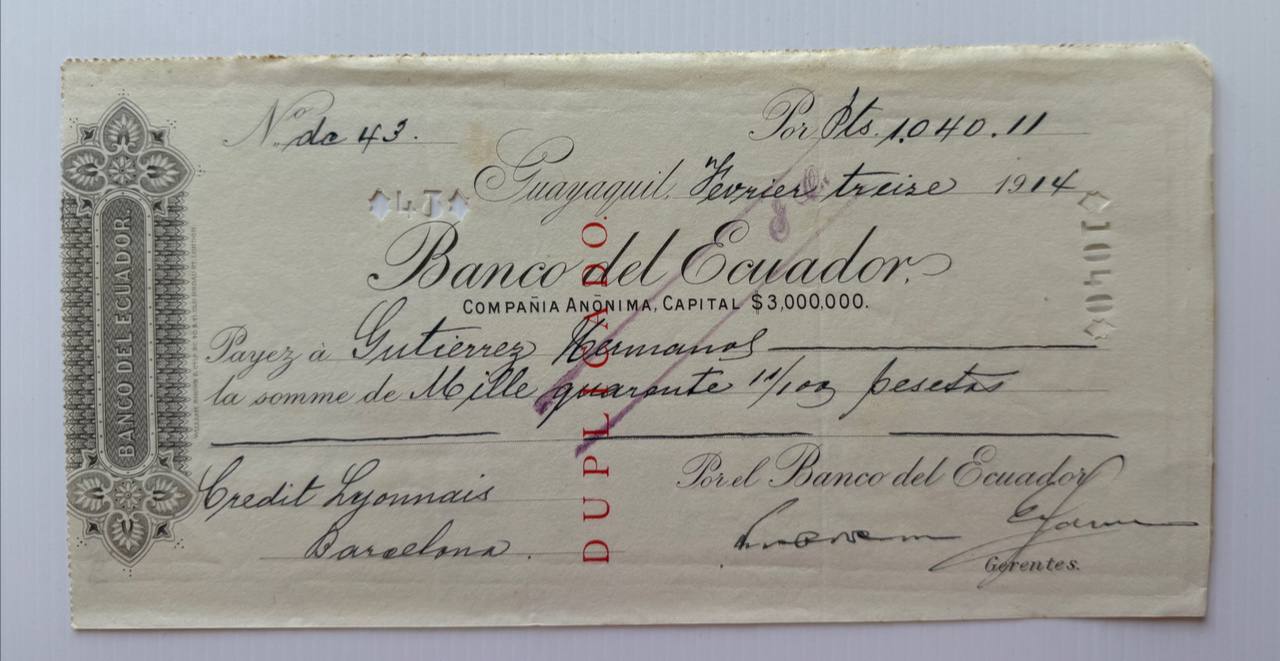 No. dc 43.
Por Pts. 1.040.11
Guayaquil, Fevrier treize 1914
Banco del Ecuador.
COMPAÑIA ANÓNIMA, CAPITAL $3,000,000.
Payez à Gutierrez Hermanos
la somme de Mille quarente 11/100 pesetas
Credit Lyonnais
Barcelona.
Por el Banco del Ecuador
Gerentes.
DUPLICADO.
BANCO DEL ECUADOR.
1040